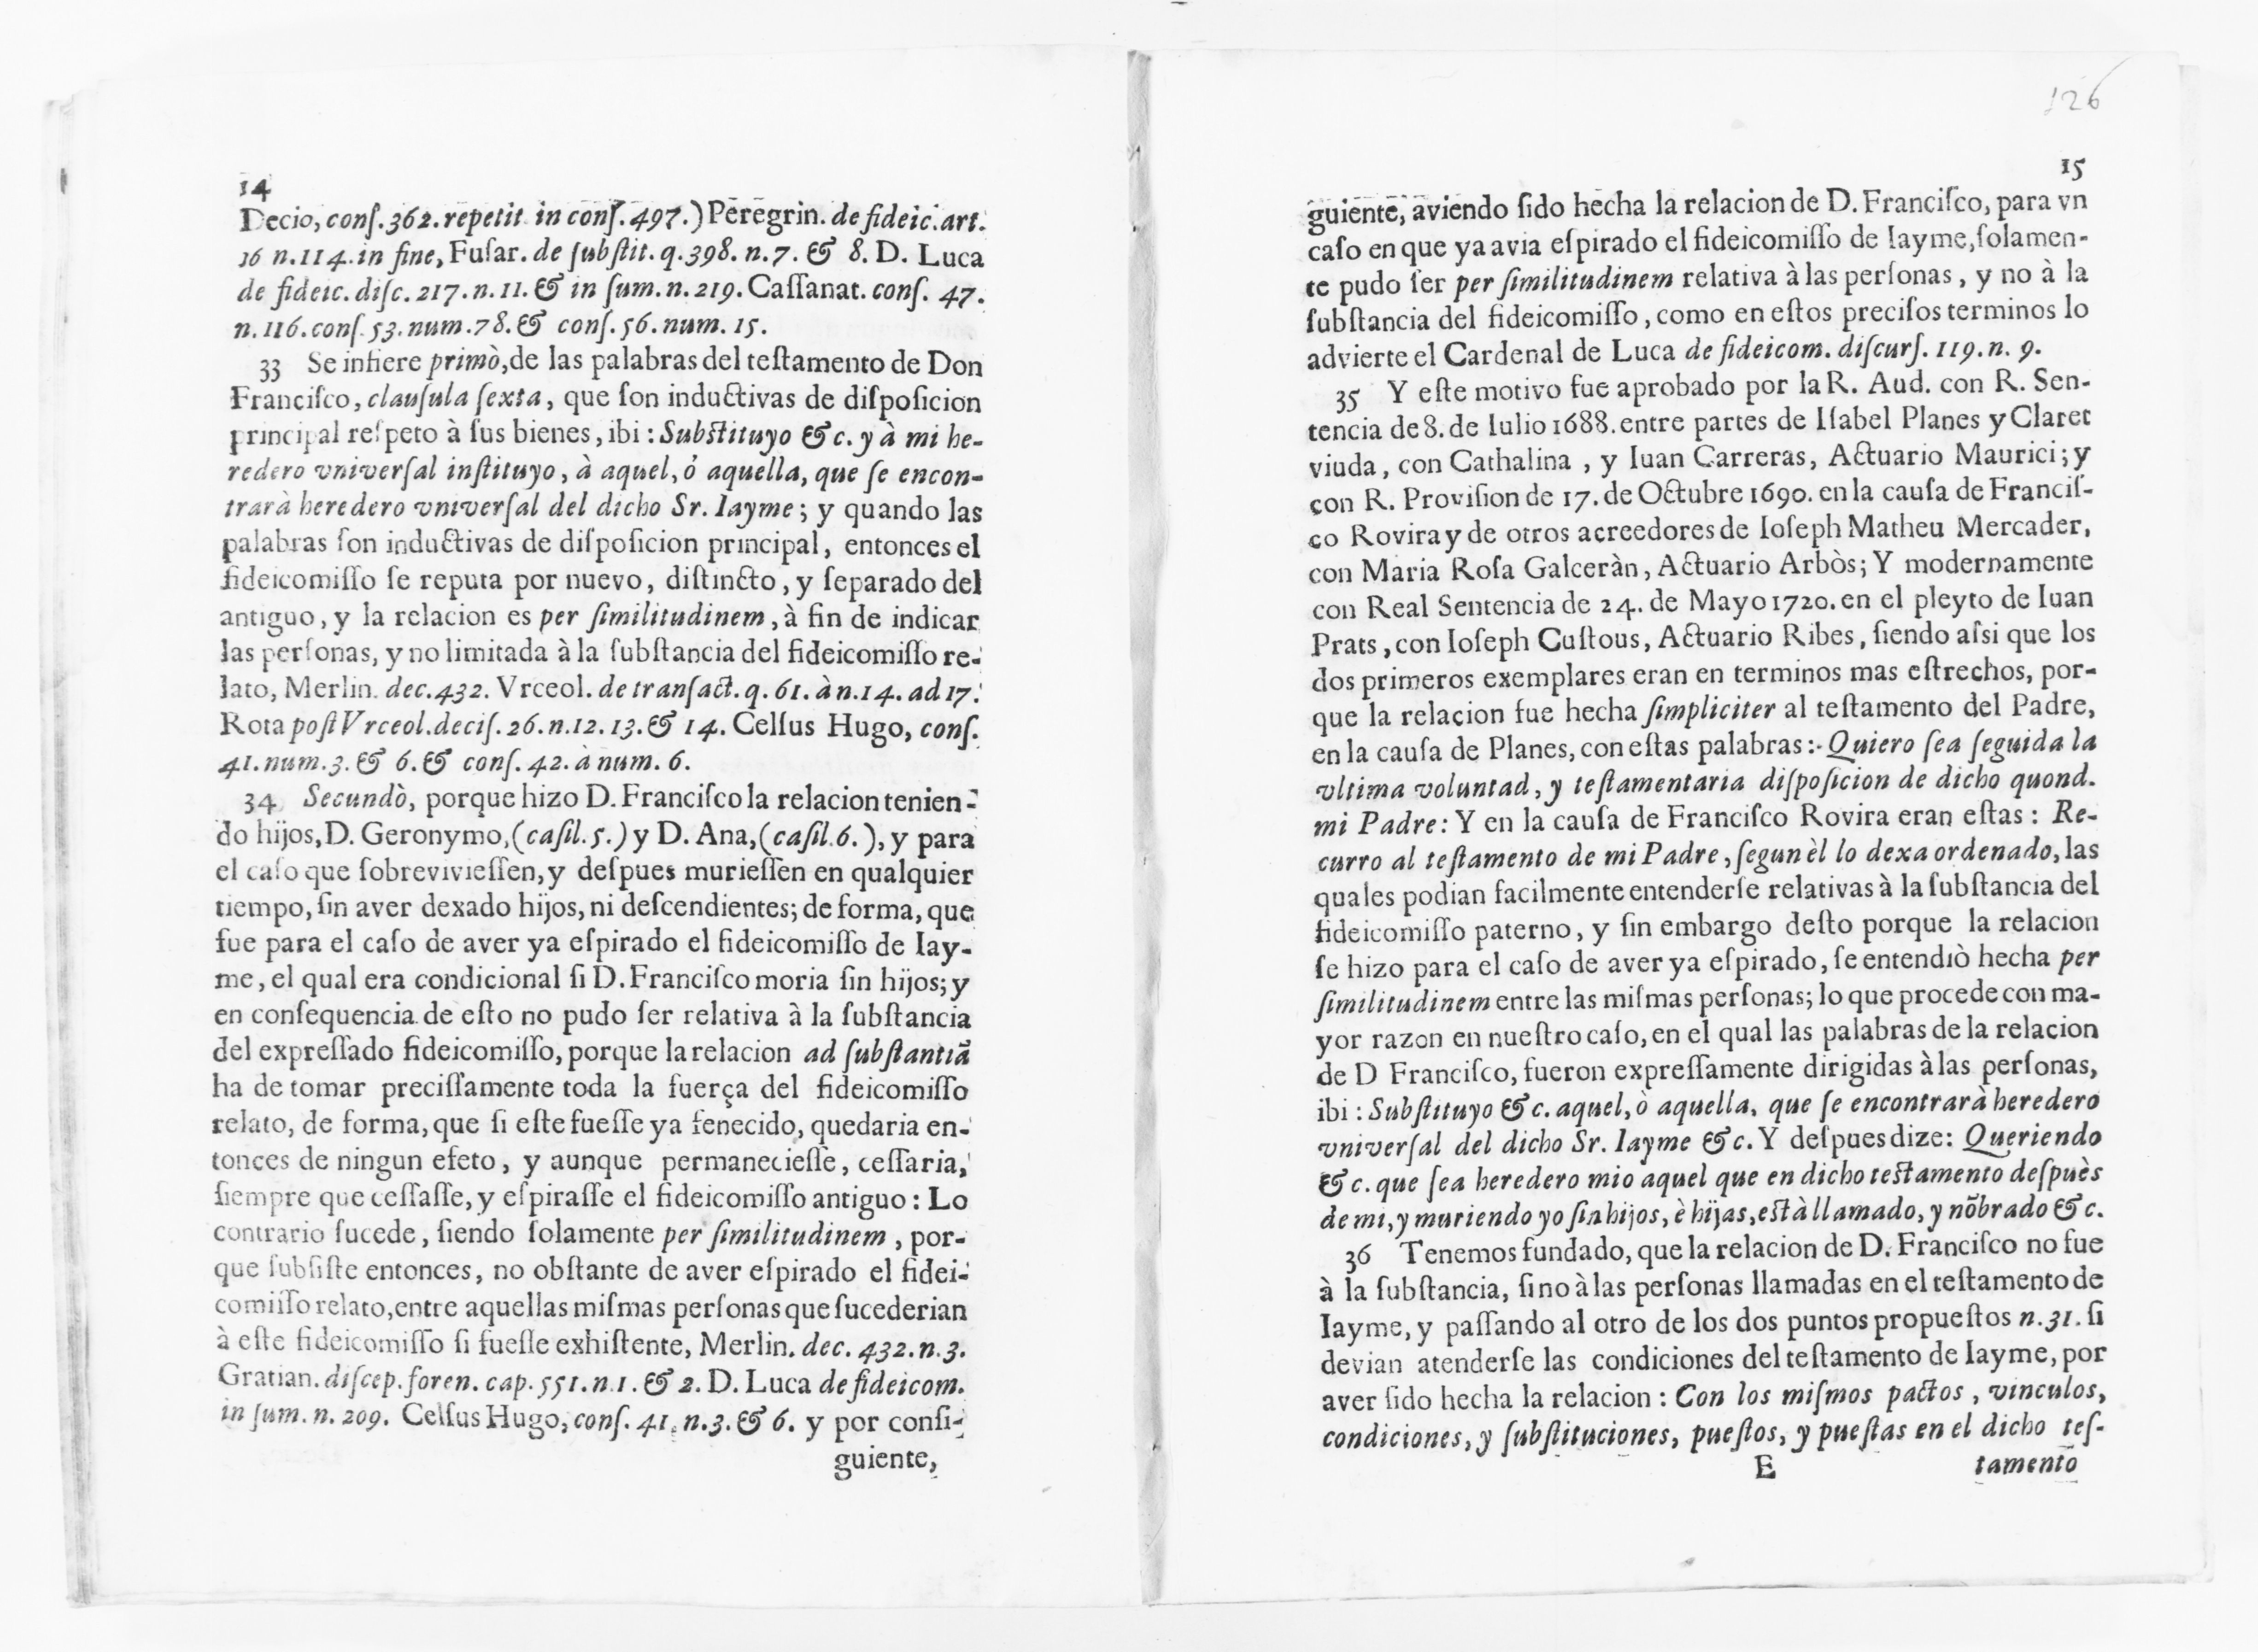 14
Decio, conſ.362. repetit in conſ.497.) Peregrin. de fideic.art.
16 n.114.in fine, Fuſar. de ſubſtit.q.398.n.7.& 8. D. Luca
de fideic.diſc.217.n.11.& in ſum.n.219. Caſſanat. conſ. 47.
n.116.conſ.53.num.78.& conſ.56.num.15.
33 Se infiere primò, de las palabras del teſtamento de Don
Franciſco, clauſula ſexta, que ſon inductivas de diſpoſicion
principal reſpeto à ſus bienes, ibi: Subſtituyo &c. y à mi he-
redero vniverſal inſtituyo, à aquel, ò aquella, que ſe encon-
trarà heredero vniverſal del dicho Sr. Iayme; y quando las
palabras ſon inductivas de diſpoſicion principal, entonces el
fideicomiſſo ſe reputa por nuevo, diſtincto, y ſeparado del
antiguo, y la relacion es per ſimilitudinem, à fin de indicar
las perſonas, y no limitada à la ſubſtancia del fideicomiſſo re-
lato, Merlin. dec.432. Vrceol. de tranſact.q.61.à n.14. ad 17.
Rota poſt Vrceol.deciſ.26.n.12.13.& 14. Celſus Hugo, conſ.
41.num.3.& 6.& conſ.42.à num. 6.
34 Secundò, porque hizo D. Franciſco la relacion tenien-
do hijos, D. Geronymo, (caſil.5.) y D. Ana, (caſil.6.), y para
el caſo que ſobrevivieſſen, y deſpues murieſſen en qualquier
tiempo, ſin aver dexado hijos, ni deſcendientes; de forma, que
fue para el caſo de aver ya eſpirado el fideicomiſſo de Iay-
me, el qual era condicional ſi D. Franciſco moria ſin hijos; y
en conſequencia de eſto no pudo ſer relativa à la ſubſtancia
del expreſſado fideicomiſſo, porque la relacion ad ſubſtantiã
ha de tomar preciſſamente toda la fuerça del fideicomiſſo
relato, de forma, que ſi eſte fueſſe ya fenecido, quedaria en-
tonces de ningun efeto, y aunque permanecieſſe, ceſſaria,
ſiempre que ceſſaſſe, y eſpiraſſe el fideicomiſſo antiguo: Lo
contrario ſucede, ſiendo ſolamente per ſimilitudinem, por-
que ſubſiſte entonces, no obſtante de aver eſpirado el fidei-
comiſſo relato, entre aquellas miſmas perſonas que ſucederian
à eſte fideicomiſſo ſi fueſſe exhiſtente, Merlin. dec. 432.n.3.
Gratian. diſcep.foren. cap.551.n.1.& 2. D. Luca de fideicom.
in ſum. n. 209. Celſus Hugo, conſ. 41. n.3.& 6. y por conſi-
guiente,
126
15
guiente, aviendo ſido hecha la relacion de D. Franciſco, para vn
caſo en que ya avia eſpirado el fideicomiſſo de Iayme, ſolamen-
te pudo ſer per ſimilitudinem relativa à las perſonas, y no à la
ſubſtancia del fideicomiſſo, como en eſtos preciſos terminos lo
advierte el Cardenal de Luca de fideicom. diſcurſ. 119.n. 9.
35 Y eſte motivo fue aprobado por la R. Aud. con R. Sen-
tencia de 8. de Iulio 1688. entre partes de Iſabel Planes y Claret
viuda, con Cathalina, y Iuan Carreras, Actuario Maurici; y
con R. Proviſion de 17. de Octubre 1690. en la cauſa de Franciſ-
co Rovira y de otros acreedores de Ioſeph Matheu Mercader,
con Maria Roſa Galceràn, Actuario Arbòs; Y modernamente
con Real Sentencia de 24. de Mayo 1720. en el pleyto de Iuan
Prats, con Ioſeph Cuſtous, Actuario Ribes, ſiendo aſsi que los
dos primeros exemplares eran en terminos mas eſtrechos, por-
que la relacion fue hecha ſimpliciter al teſtamento del Padre,
en la cauſa de Planes, con eſtas palabras: Quiero ſea ſeguida la
vltima voluntad, y teſtamentaria diſpoſicion de dicho quond.
mi Padre: Y en la cauſa de Franciſco Rovira eran eſtas: Re-
curro al teſtamento de mi Padre, ſegun èl lo dexa ordenado, las
quales podian facilmente entenderſe relativas à la ſubſtancia del
fideicomiſſo paterno, y ſin embargo deſto porque la relacion
ſe hizo para el caſo de aver ya eſpirado, ſe entendiò hecha per
ſimilitudinem entre las miſmas perſonas; lo que procede con ma-
yor razon en nueſtro caſo, en el qual las palabras de la relacion
de D Franciſco, fueron expreſſamente dirigidas à las perſonas,
ibi: Subſtituyo &c. aquel, ò aquella, que ſe encontrarà heredero
vniverſal del dicho Sr. Iayme &c. Y deſpues dize: Queriendo
&c. que ſea heredero mio aquel que en dicho teſtamento deſpuès
de mi, y muriendo yo ſin hijos, è hijas, eſtà llamado, y nõbrado &c.
36 Tenemos fundado, que la relacion de D. Franciſco no fue
à la ſubſtancia, ſino à las perſonas llamadas en el teſtamento de
Iayme, y paſſando al otro de los dos puntos propueſtos n.31. ſi
devian atenderſe las condiciones del teſtamento de Iayme, por
aver ſido hecha la relacion: Con los miſmos pactos, vinculos,
condiciones, y ſubſtituciones, pueſtos, y pueſtas en el dicho teſ-
E tamento